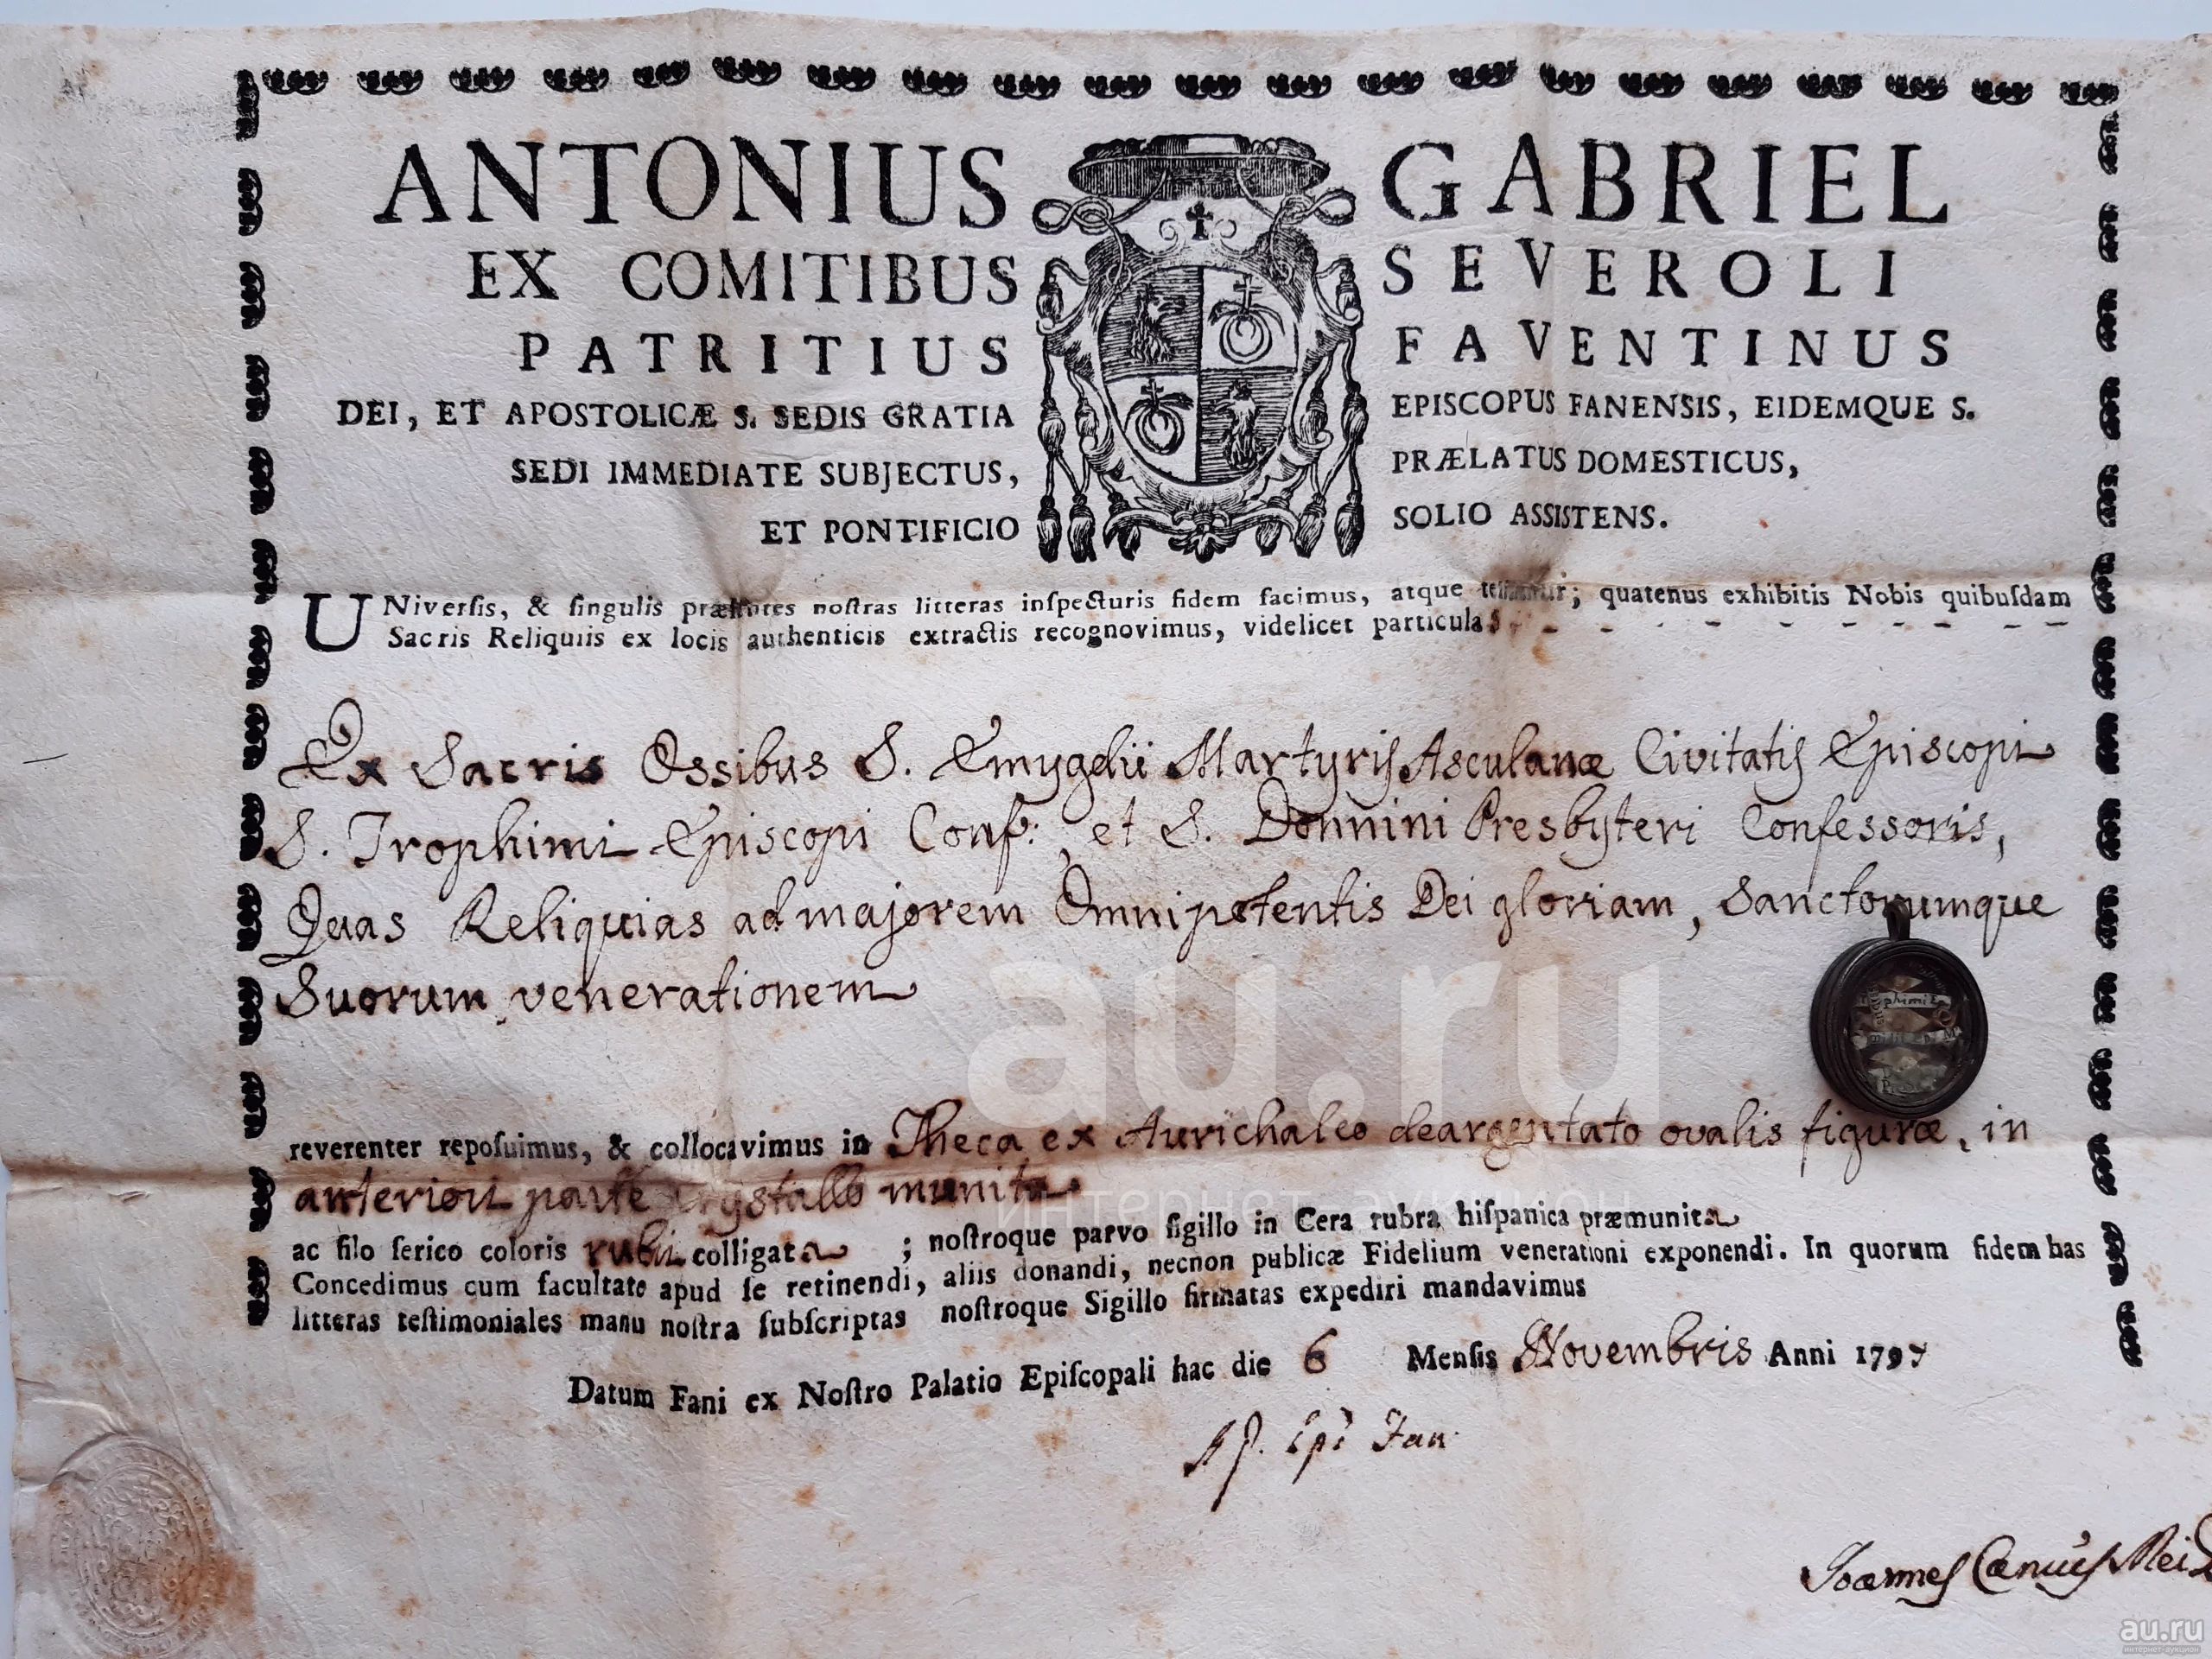 ANTONIUS GABRIEL
EX COMITIBUS SEVEROLI
PATRITIUS FAVENTINUS
DEI, ET APOSTOLICÆ S. SEDIS GRATIA EPISCOPUS FANENSIS, EIDEMQUE S.
SEDI IMMEDIATE SUBJECTUS, PRÆLATUS DOMESTICUS,
ET PONTIFICIO SOLIO ASSISTENS.
UNiverſis, & ſingulis præſentes noſtras litteras inſpecturis fidem facimus, atque teſtamur; quatenus exhibitis Nobis quibuſdam
Sacris Reliquiis ex locis authenticis extractis recognovimus, videlicet particulas - - - - - - - - - -
Ex Sacris Ossibus S. Emygdii Martyris Asculanæ Civitatis Episcopi
S. Trophimi Episcopi Conf: , et S. Donnini Presbyteri Confessoris,
Quas Reliquias ad majorem Omnipotentis Dei gloriam, Sanctorumque
Suorum venerationem
reverenter repoſuimus, & collocavimus in Theca ex Aurichalco deargentato ovalis figuræ, in
anteriori parte crystallo munita
ac filo ſerico coloris rubri colligata ; noſtroque parvo ſigillo in Cera rubra hiſpanica præmunita
Concedimus cum facultate apud ſe retinendi, aliis donandi, necnon publicæ Fidelium venerationi exponendi. In quorum fidem has
litteras teſtimoniales manu noſtra ſubſcriptas noſtroque Sigillo firmatas expediri mandavimus
Datum Fani ex Noſtro Palatio Epiſcopali hac die 6 Menſis Novembris Anni 1797
Fan.
Joannes
au.ru
интернет-аукцион
au.ru
интернет-аукцион